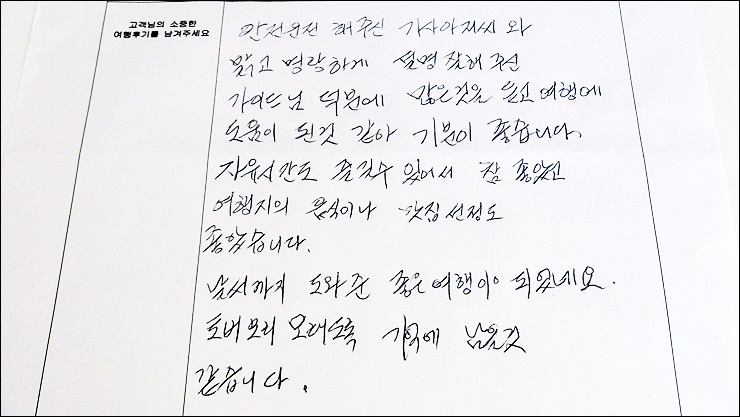 고객님의 소중한
여행후기를 남겨주세요
안전운전 해주신 기사아저씨 와
맑고 명랑하게 설명 잘해 주신
가이드님 덕분에 많은것을 듣고 여행에
도움이 된것 같아 기분이 좋습니다.
자유시간도 즐길수 있어서 참 좋았고
여행지의 음식이나 맛집 선정도
좋았습니다.
날씨까지 도와준 좋은 여행이 되었네요.
토버모리 오래도록 기억에 남을것
같습니다.